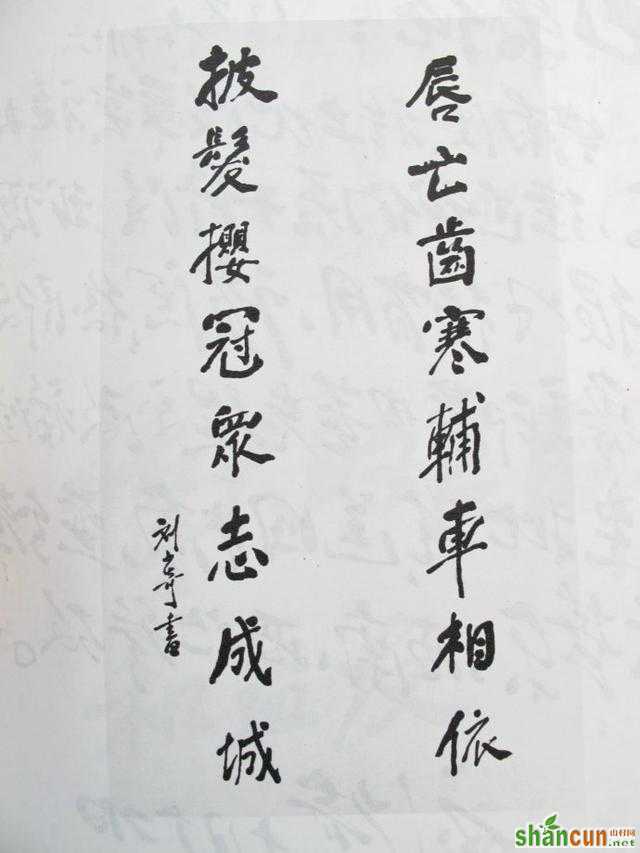 唇亡齒寒輔車相依
披髮攖冠眾志成城
刘少奇書
shancun
山村网
.net